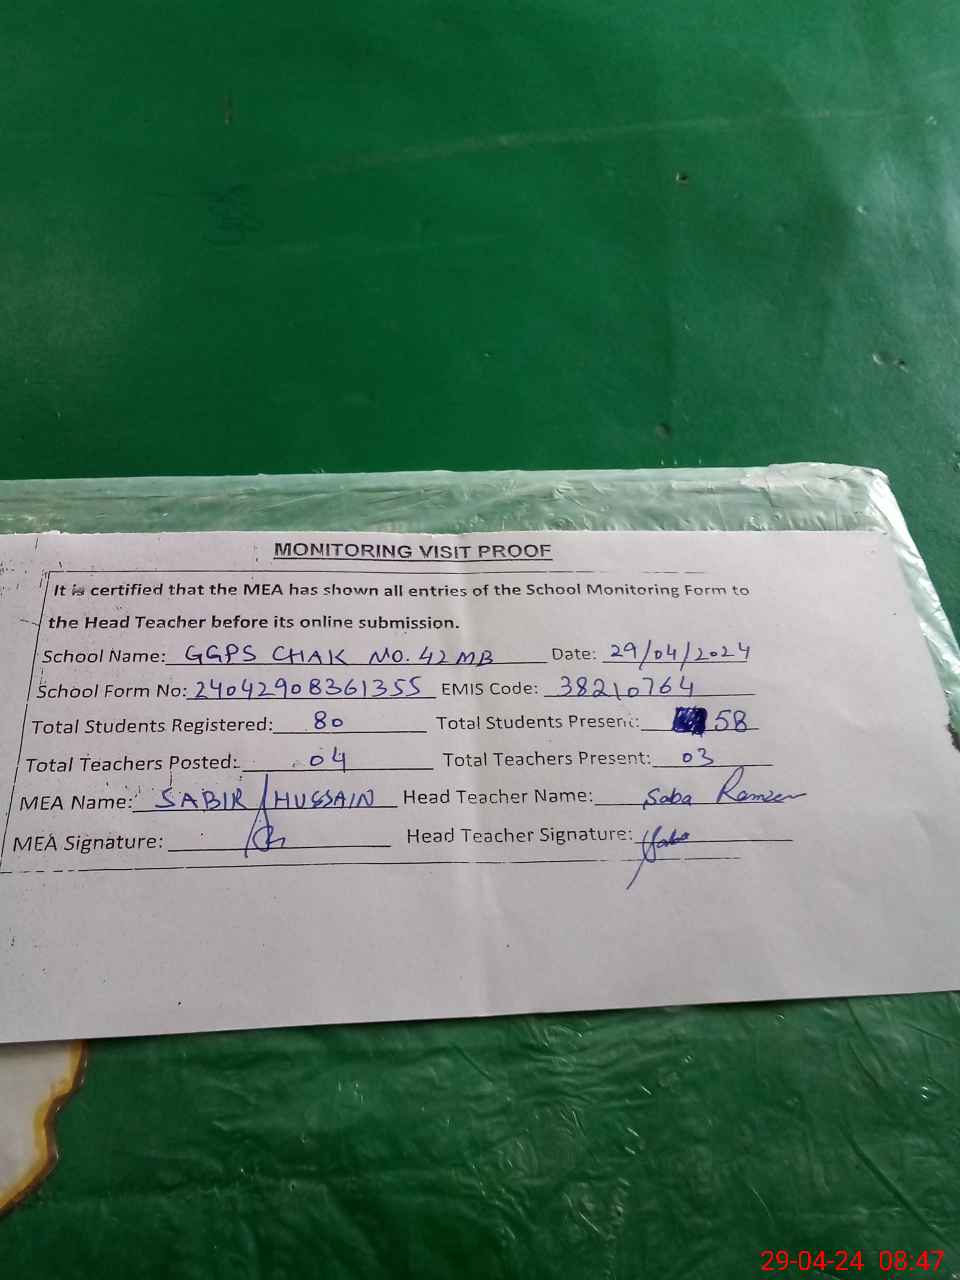 MONITORING VISIT PROOF
It is certified that the MEA has shown all entries of the School Monitoring Form to
the Head Teacher before its online submission.
School Name: GGPS CHAK NO. 42 MB Date: 29/04/2024
School Form No: 24042908361355 EMIS Code: 38210764
Total Students Registered: 80 Total Students Present: 58
Total Teachers Posted: 04 Total Teachers Present: 03
MEA Name: SABIR HUSSAIN Head Teacher Name: Saba
MEA Signature: Head Teacher Signature:
29-04-24 08:47